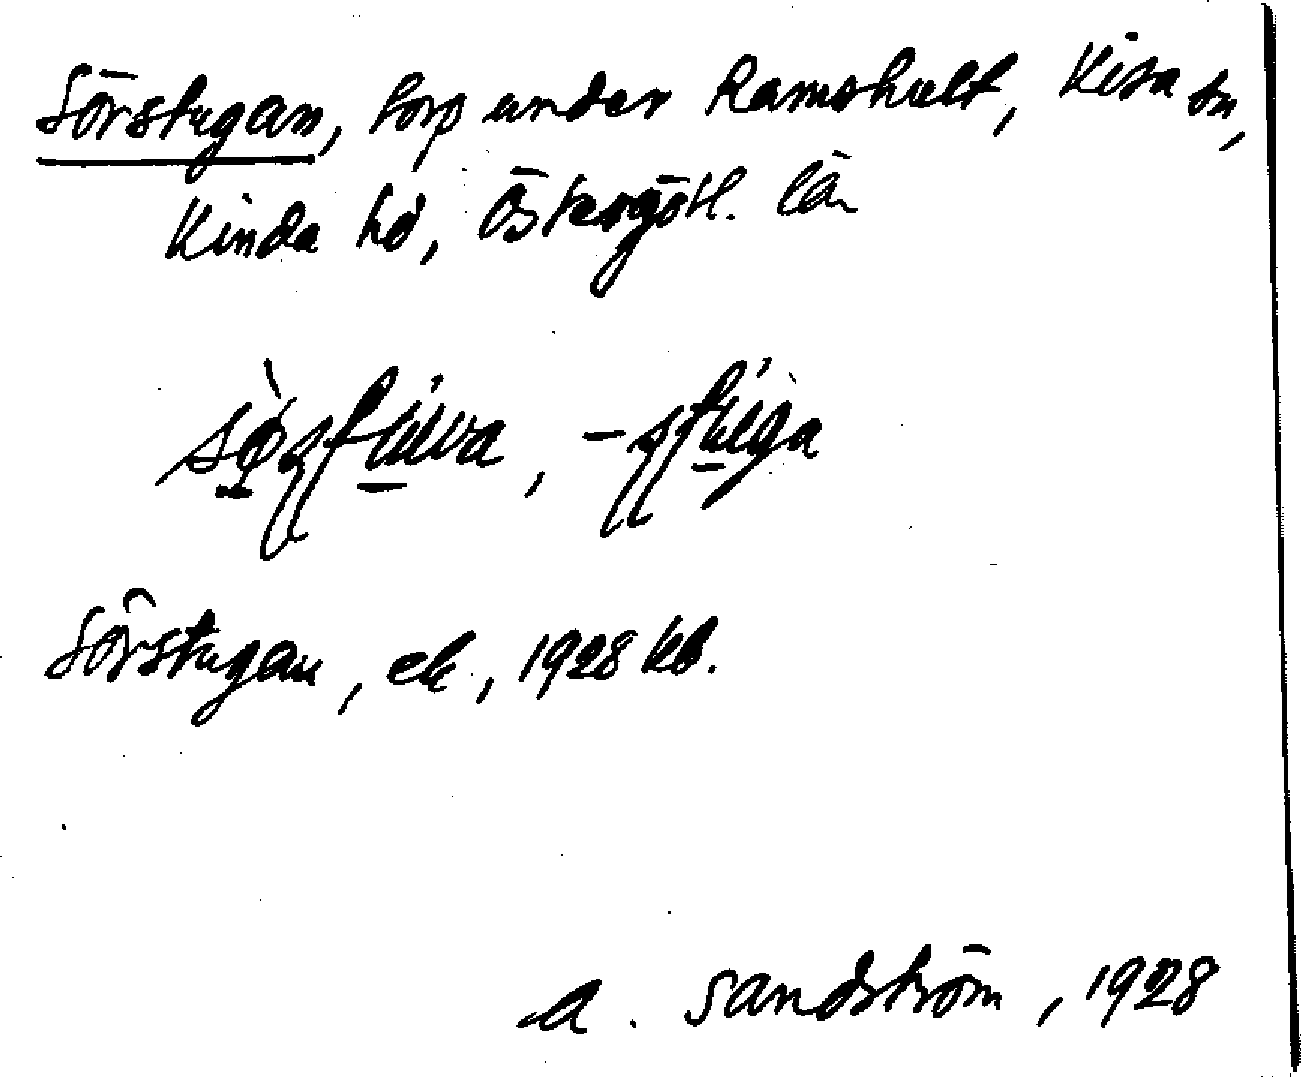 Sörstugan, torp under Ramshult, Kisa sn,
Kinda hd, Östergötl. län
Sörstugan, ek, 1928 kb.
A. Sandström, 1928